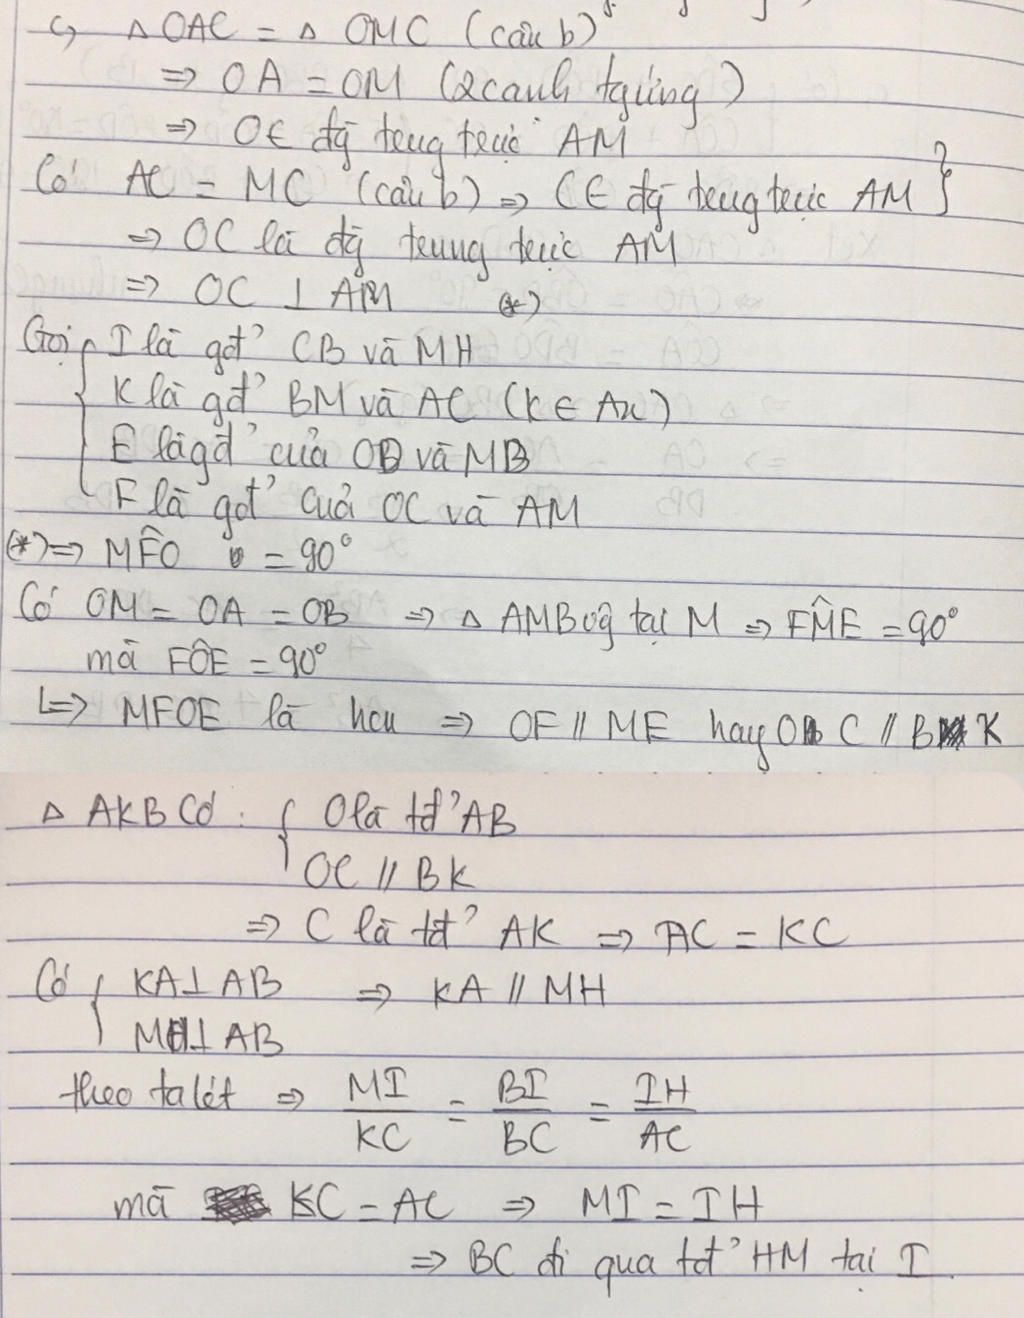 c, △ OAC = △ OMC (câu b)
⇒ OA = OM (2 cạnh tg ứng)
⇒ O ∈ đg trung trực AM
Có AC = MC (câu b) ⇒ C ∈ đg trung trực AM }
⇒ OC là đg trung trực AM
⇒ OC ⊥ AM (*)
Gọi { I là gđ' CB và MH
K là gđ' BM và AC (K ∈ Ax)
E là gđ' của OD và MB
F là gđ' của OC và AM
(*) ⇒ MF̂O = 90°
Có OM = OA = OB ⇒ △ AMB vg tại M ⇒ FM̂E = 90°
mà FÔE = 90°
↳⇒ MFOE là hcn ⇒ OF // ME hay OC // BK
△ AKB có : { O là tđ' AB
OC // BK
⇒ C là tđ' AK ⇒ AC = KC
Có { KA ⊥ AB ⇒ KA // MH
MH ⊥ AB
theo talét ⇒ MI/KC = BI/BC = IH/AC
mà KC = AC ⇒ MI = IH
⇒ BC đi qua tđ' HM tại I.